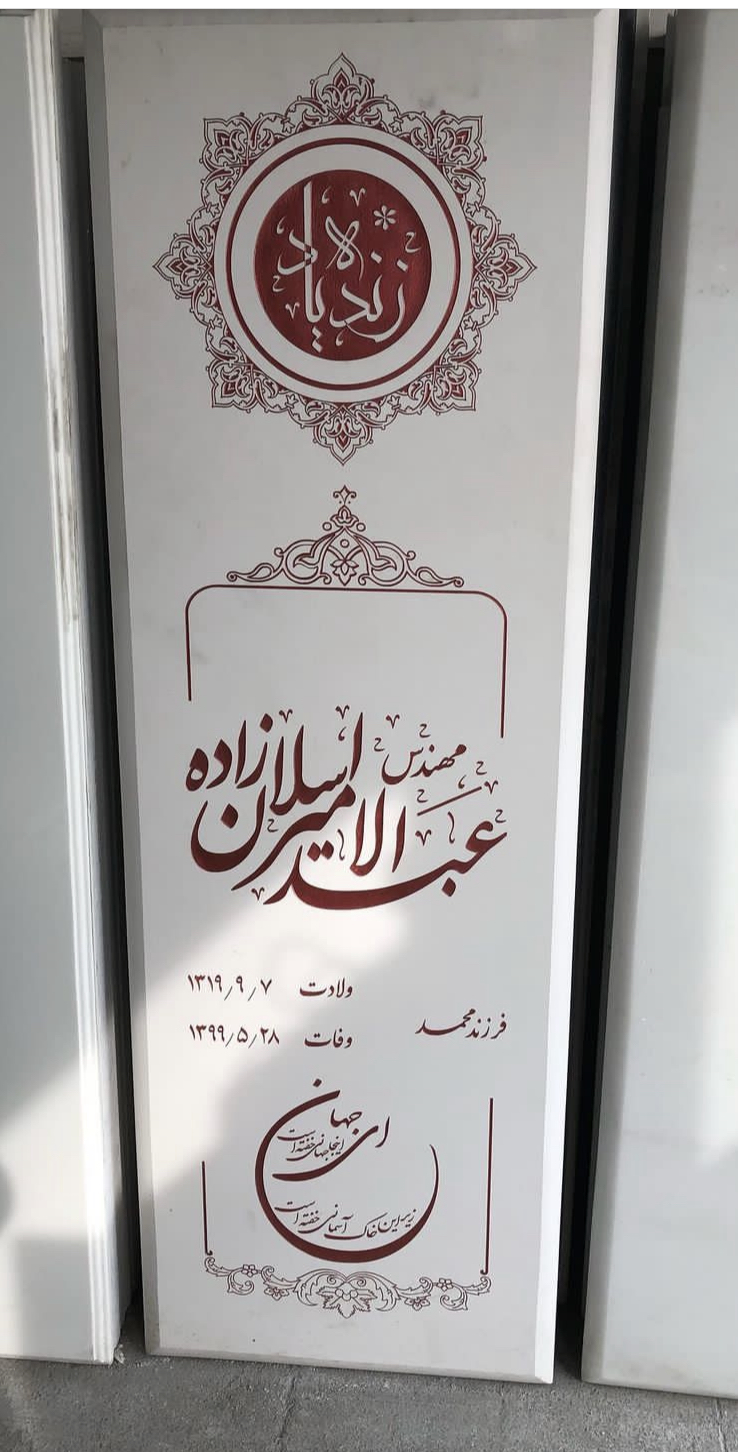 زنده یاد
مهندس
عبدالامیر ارسلان زاده
ولادت ۱۳۱۹٫۹٫۷
فرزند محمد
وفات ۱۳۹۹٫۵٫۲۸
ای جهان
اینجا جهانی خفته است
زیر این خاک آسمانی خفته است